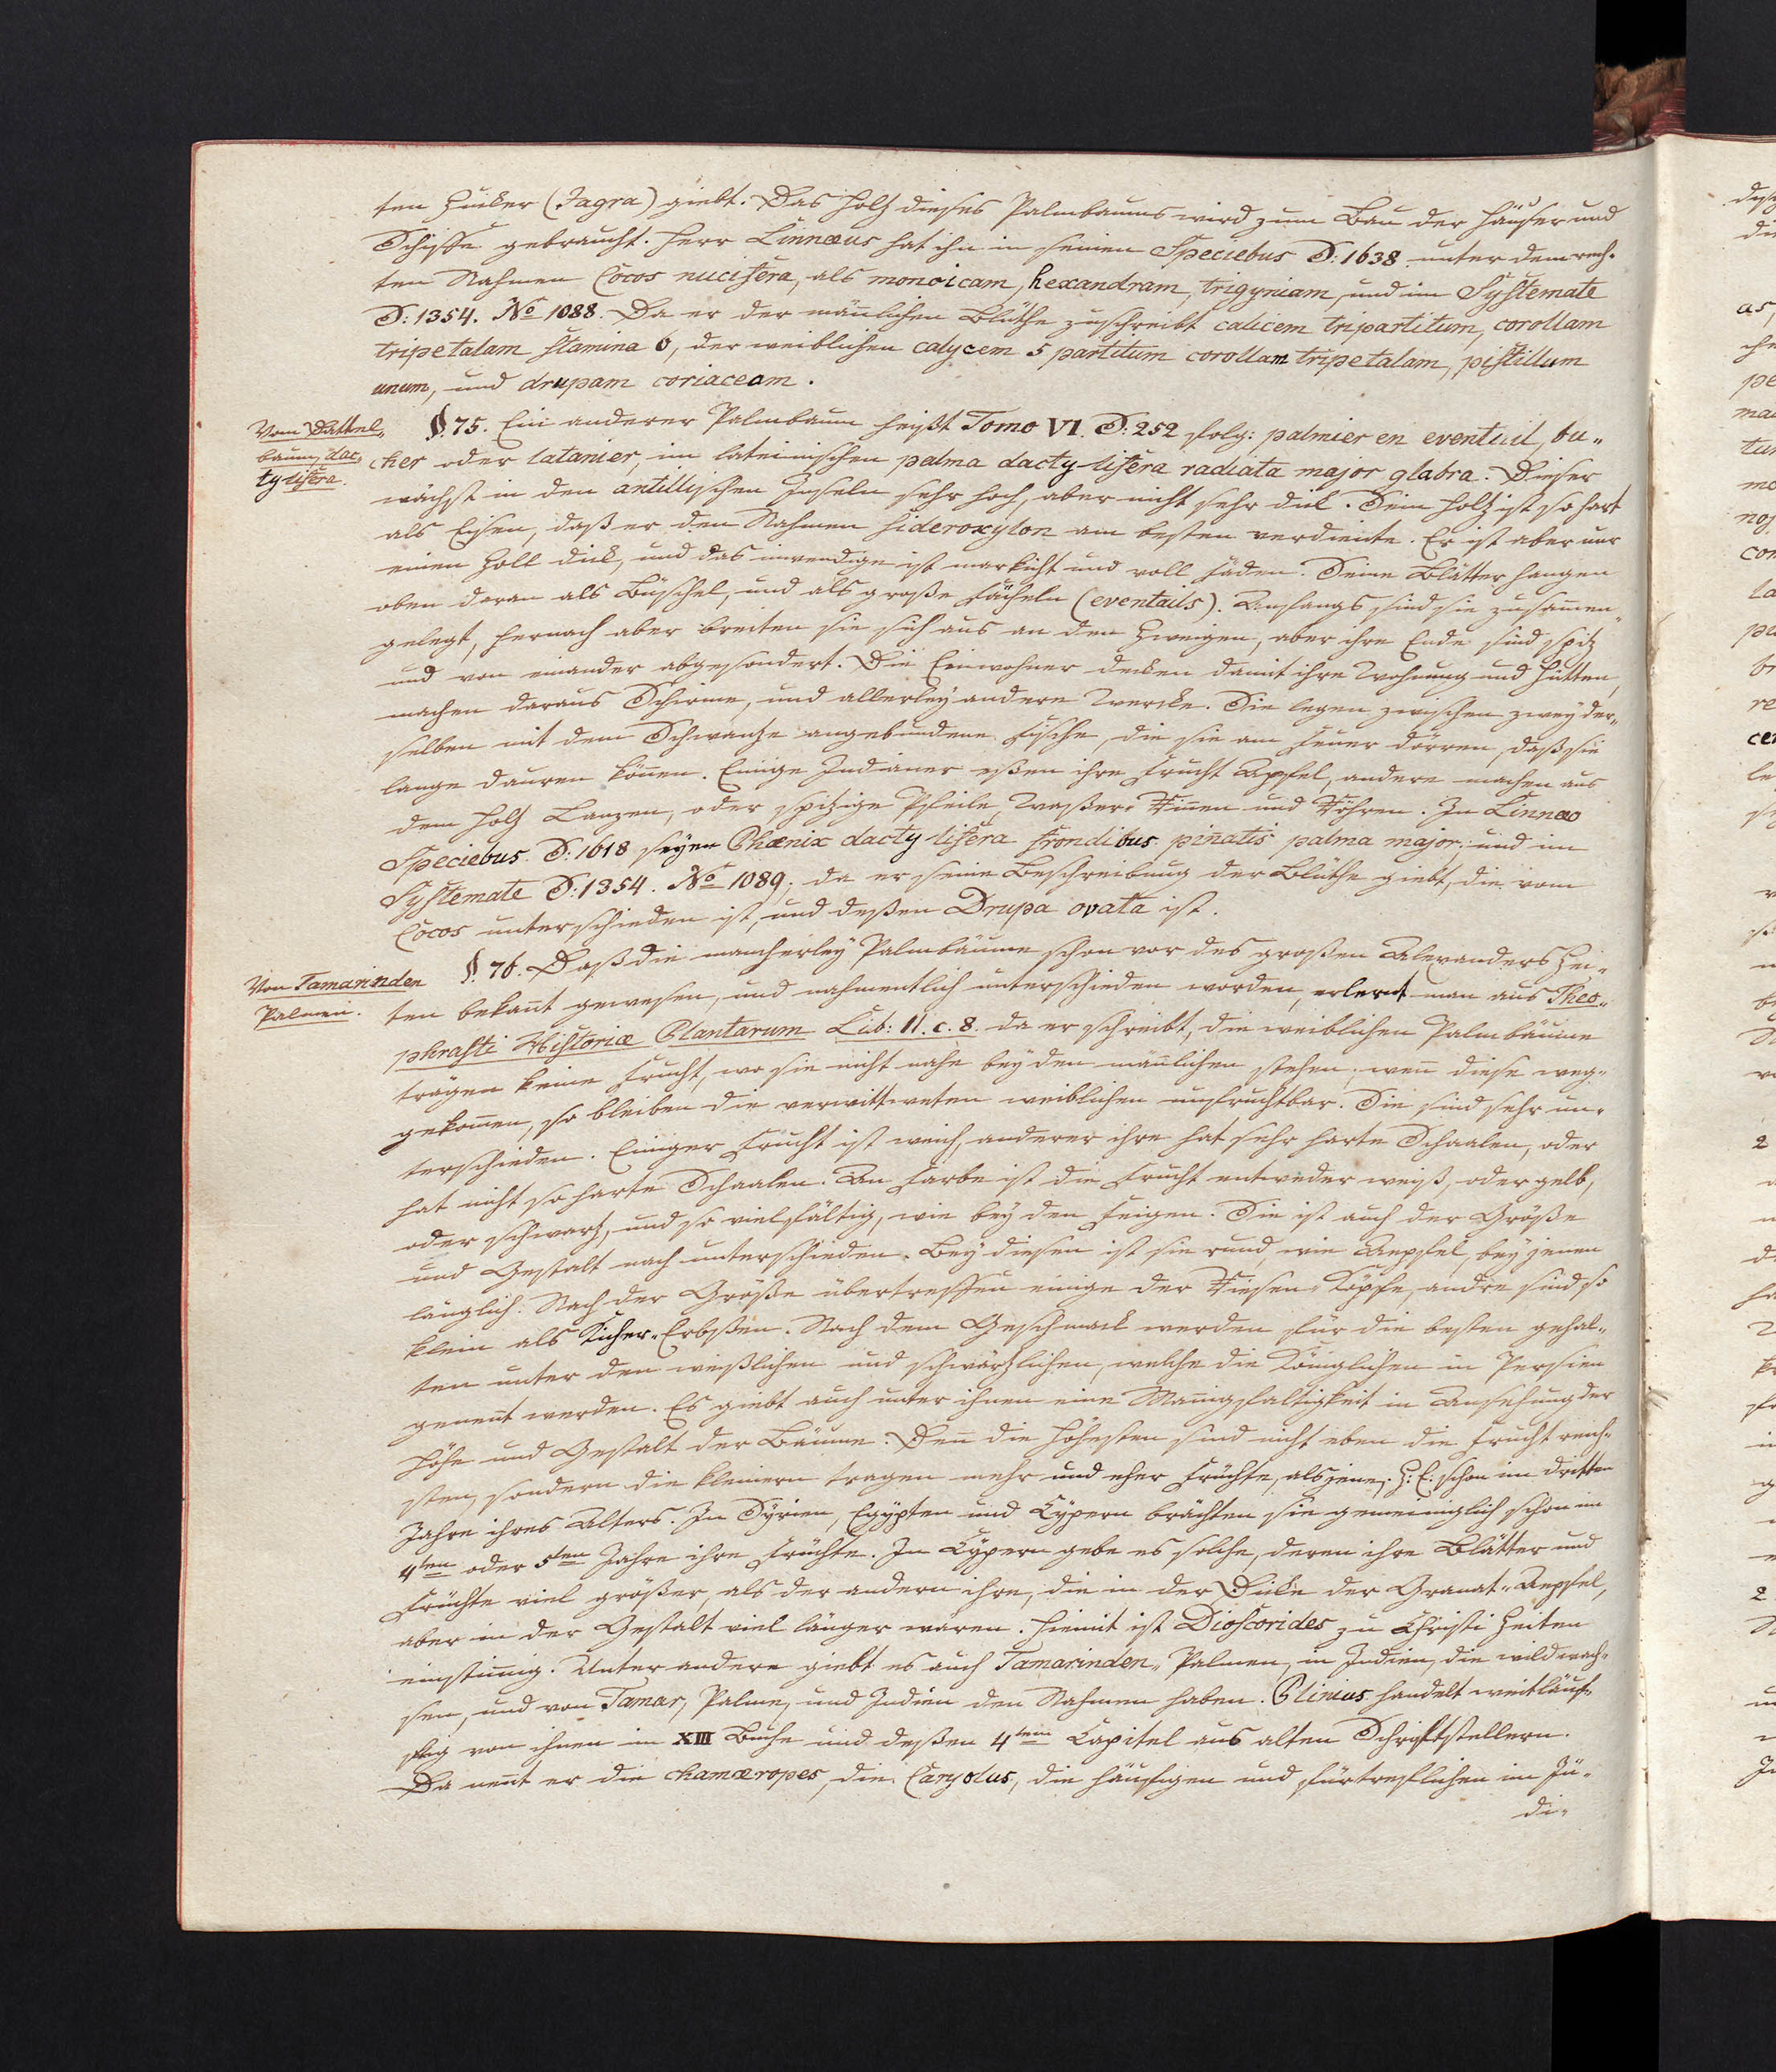 ten Zucker (Jagra) giebt. Das Holz dieses Palmbaums wird zum Bau der Häuser und
Schiffe gebraucht. Herr Linnæus hat ihn in seinen Speciebus S: 1638 unter dem rech-
ten Nahmen Cocos nucifera, als monoicam, hexandram, trigyniam, und im Systemate
S: 1354. No 1088. Da er der mänlichen Blüthe zuschreibt calicem tripartitum, corollam
tripetalam stamina 6, der weiblichen calycem 5 partitum corollam tripetalam, pistillum
unum, und drupam coriaceam.
Vom Dattel-
baum, dac-
tylifera.
§. 75. Ein anderer Palmbaum heißt Tomo VI. S: 252 folg: palmier en eventail, bu-
cher oder latanier, im lateinischen palma dactylifera radiata major glabra. Dieser
wächst in den antillischen Inseln sehr hoch, aber nicht sehr dick. Sein Holz ist so hart
als Eisen, daß er den Nahmen sideroxylon am besten verdiente. Er ist aber nur
einen Zoll dick, und das inwendige ist markicht und voll Fäden. Seine Blätter hangen
oben daran als Büschel, und als große Fächeln (eventails). Anfangs sind sie zusam̄en-
gelegt, hernach aber breiten sie sich aus an den Zweigen, aber ihre Ende sind spiz
und von einander abgesondert. Die Einwohner decken damit ihre Wohnung und Hütten,
machen daraus Schirme, und allerley andere Wercke. Sie legen zwischen zwey der-
selben mit dem Schwantze angebundene Fische, die sie am Feuer dörren, daß sie
lange dauren kön̄en. Einige Indianer eßen ihre Frucht Apfel, andere machen aus
dem Holz Lanzen, oder spitzige Pfeile, Waßer-Rin̄en und Röhren. In Linnæo
Speciebus S: 1618 seyen Phœnix dactylifera frondibus pin̄atis palma major: und im
Systemate S: 1354. No 1089. da er seine Beschreibung der Blüthe giebt, die vom
Cocos unterschieden ist, und deßen Drupa ovata ist.
Von Tamarinden
Palmen.
§. 76. Daß die mancherley Palmbäume schon vor des großen Alexanders Zei-
ten bekan̄t gewesen, und nahmentlich unterschieden worden, erlernt man aus Theo-
phrasti Historiæ Plantarum Lib: II. c. 8. da er schreibt, die weiblichen Palmbäume
trägen keine Frucht, wo sie nicht nahe bey den män̄lichen stehen; wen̄ diese weg-
gekom̄en, so bleiben die verwittweten weiblichen unfruchtbar. Sie sind sehr un-
terschieden. Einiger Frucht ist weich, anderer ihre hat sehr harte Schaalen, oder
hat nicht so harte Schaalen. An Farbe ist die Frucht entweder weiß, oder gelb,
oder schwarz, und so vielfältig, wie bey den Feigen. Sie ist auch der Größe
und Gestalt nach unterschieden. Bey diesen ist sie rund, wie Aepfel, bey jenen
länglich. Nach der Größe übertreffen einige der Riesen-Köpfe, andre sind so
klein als Kicher-Erbßen. Nach dem Geschmack werden für die besten gehal-
ten unter den weißlichen und schwärzlichen, welche die Königlichen in Persien
genen̄t werden. Es giebt auch unter ihnen eine Man̄igfaltigkeit in Ansehung der
Höhe und Gestalt der Bäume. Den̄ die höhesten sind nicht eben die Frucht reich-
sten, sondern die kleinern tragen mehr und eher Früchte, als jene; Z: E: schon im dritten
Jahre ihres Alters. In Syrien, Egypten und Cypern brächten sie gemeiniglich schon im
4ten oder 5ten Jahre ihre Früchte. In Cypern gebe es solche, deren ihre Blätter und
Früchte viel größer, als der andern ihre, die in der Dicke der Granat-Aepfel,
aber in der Gestalt viel länger wären. Hiemit ist Dioscorides zu Christi Zeiten
einstim̄ig. Unter andere giebt es auch Tamarinden-Palmen, in Indien, die wild wach-
sen, und von Tamar, Palme, und Indien den Nahmen haben. Plinius handelt weitläuf-
tig von ihnen im XIII Buche und deßen 4tem Capitel aus alten Schriftstellern.
Da nen̄t er die chamæropes, die Caryotus, die häufigen und fürtreflichen im Jü-
di-